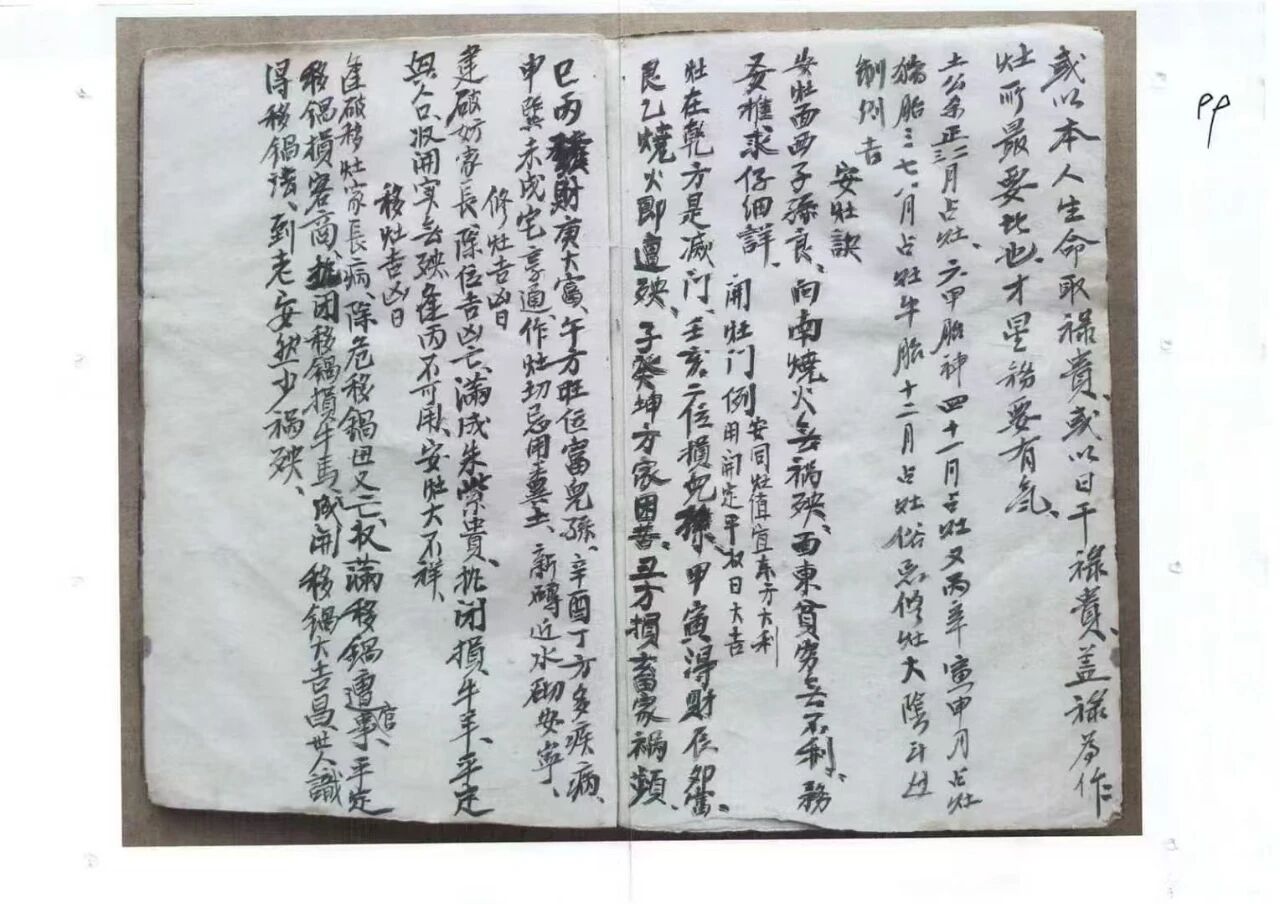 或以本人生命取禄貴、或以日干禄貴、盖禄為作
灶所最要北也、才星務要有气、
土公杀正二三月占灶、六甲胎神四十一月占灶又丙辛寅申月占灶
猪胎三七八月占灶牛胎十二月占灶俗忌修灶大隂斗丑
制例吉
安灶訣
安灶面西子孫良、向南燒火無禍殃、西東貧窮無不利、務
要推求仔細詳、
開灶门例 安同灶值宜東方大利
用開定平收日大吉
灶在乾方是滅门、壬亥二位損兒孫、甲寅得財辰卯富、
艮乙燒火即遭殃、子癸坤方家困苦、丑方損畜家禍頻、
巳丙發財庚大富、午方旺位富兒孫、辛酉丁方多疾病、
申巽未戌宅亨通、作灶切忌用糞土、新磚近水砌安寧、
修灶吉凶日
建破妨家長、除位吉凶亡、滿成朱紫貴、执闭損牛羊、平定
興人口、收開实無殃、逢丙不可用、安灶大不祥、
移灶吉凶日
逢破移灶家長病、除危移鍋丑又亡、收滿移鍋遭官事、平定
移鍋損客商、执闭移鍋損牛馬、成開移鍋大吉昌、世人識
得移鍋法、到老安然少禍殃、